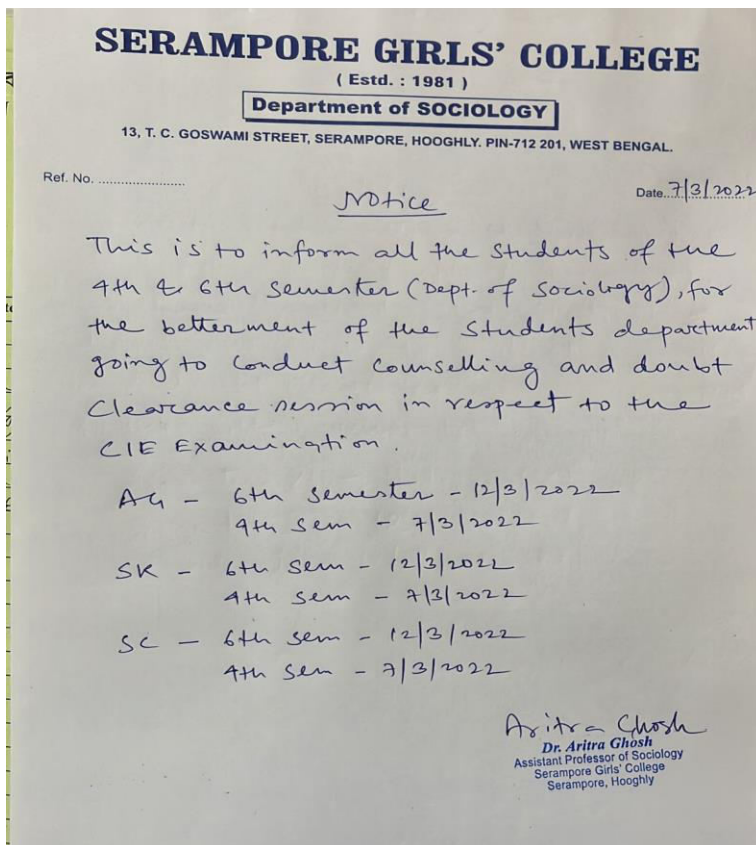 SERAMPORE GIRLS' COLLEGE
( Estd. : 1981 )
Department of SOCIOLOGY
13, T. C. GOSWAMI STREET, SERAMPORE, HOOGHLY. PIN-712 201, WEST BENGAL.
Ref. No. ........................
Date..7/3/2022
Notice
This is to inform all the students of the
4th & 6th semester (Dept. of Sociology), for
the betterment of the students department
going to conduct counselling and doubt
clearance session in respect to the
CIE Examination.
AG - 6th semester - 12/3/2022
4th sem - 7/3/2022
SK - 6th sem - 12/3/2022
4th sem - 7/3/2022
SC - 6th sem - 12/3/2022
4th sem - 7/3/2022
Aritra Ghosh
Dr. Aritra Ghosh
Assistant Professor of Sociology
Serampore Girls' College
Serampore, Hooghly